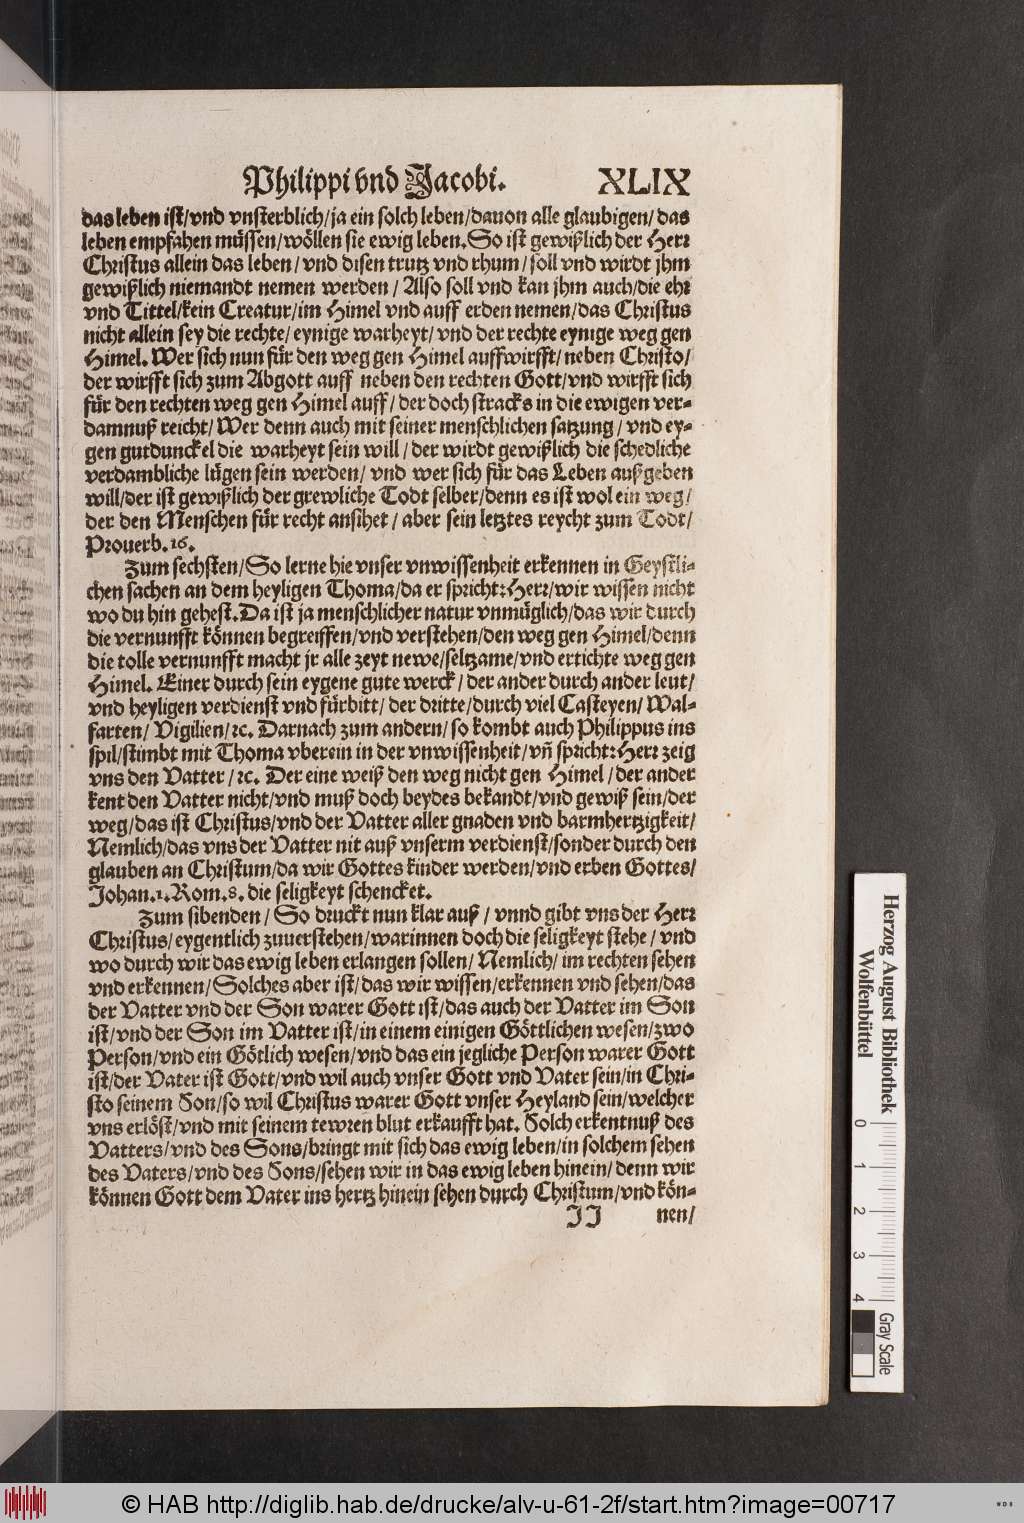 Philippi vnd Jacobi. XLIX
das leben ist/vnd vnsterblich/ja ein solch leben/dauon alle glaubigen/das
leben empfahen müssen/wöllen sie ewig leben. So ist gewißlich der Herr
Christus allein das leben/vnd disen trutz vnd rhum/soll vnd wirdt jhm
gewißlich niemandt nemen werden/Also soll vnd kan jhm auch/die ehr
vnd Tittel/kein Creatur/im Himel vnd auff erden nemen/das Christus
nicht allein sey die rechte/eynige warheyt/vnd der rechte eynige weg gen
Himel. Wer sich nun für den weg gen Himel auffwirfft/neben Christo/
der wirfft sich zum Abgott auff neben den rechten Gott/vnd wirfft sich
für den rechten weg gen Himel auff/der doch stracks in die ewigen ver-
damnuß reicht/Wer denn auch mit seiner menschlichen satzung/vnd ey-
gen gutdunckel die warheyt sein will/der wirdt gewißlich die schedliche
verdambliche lügen sein werden/vnd wer sich für das Leben außgeben
will/der ist gewißlich der grewliche Todt selber/denn es ist wol ein weg/
der den Menschen für recht ansihet/aber sein letztes reycht zum Todt/
Prouerb. 16.
Zum sechsten/So lerne hie vnser vnwissenheit erkennen in Geystli-
chen sachen an dem heyligen Thoma/da er spricht: Herr/wir wissen nicht
wo du hin gehest. Da ist ja menschlicher natur vnmüglich/das wir durch
die vernunfft können begreiffen/vnd verstehen/den weg gen Himel/denn
die tolle vernunfft macht jr alle zeyt newe/seltzame/vnd ertichte weg gen
Himel. Einer durch sein eygene gute werck/der ander durch ander leut/
vnd heyligen verdienst vnd fürbitt/der dritte/durch viel Casteyen/Wal-
farten/Vigilien/ꝛc. Darnach zum andern/so kombt auch Philippus ins
spil/stimbt mit Thoma vberein in der vnwissenheit/vñ spricht: Herr zeig
vns den Vatter/ꝛc. Der eine weiß den weg nicht gen Himel/der ander
kent den Vatter nicht/vnd muß doch beydes bekandt/vnd gewiß sein/der
weg/das ist Christus/vnd der Vatter aller gnaden vnd barmhertzigkeit/
Nemlich/das vns der Vatter nit auß vnserm verdienst/sonder durch den
glauben an Christum/da wir Gottes kinder werden/vnd erben Gottes/
Johan. 1. Rom. 8. die seligkeyt schencket.
Zum sibenden/So druckt nun klar auß/vnnd gibt vns der Herr
Christus/eygentlich zuuerstehen/warinnen doch die seligkeyt stehe/vnd
wo durch wir das ewig leben erlangen sollen/Nemlich/im rechten sehen
vnd erkennen/Solches aber ist/das wir wissen/erkennen vnd sehen/das
der Vatter vnd der Son warer Gott ist/das auch der Vatter im Son
ist/vnd der Son im Vatter ist/in einem einigen Göttlichen wesen/zwo
Person/vnd ein Götlich wesen/vnd das ein jegliche Person warer Gott
ist/der Vater ist Gott/vnd wil auch vnser Gott vnd Vater sein/in Chri-
sto seinem Son/so wil Christus warer Gott vnser Heyland sein/welcher
vns erlöst/vnd mit seinem tewren blut erkaufft hat. Solch erkentnuß des
Vatters/vnd des Sons/bringt mit sich das ewig leben/in solchem sehen
des Vaters/vnd des Sons/sehen wir in das ewig leben hinein/denn wir
können Gott dem Vater ins hertz hinein sehen durch Christum/vnd kön-
JJ nen/
Herzog August Bibliothek
Wolfenbüttel
0 1 2 3 4
Gray Scale
© HAB http://diglib.hab.de/drucke/alv-u-61-2f/start.htm?image=00717